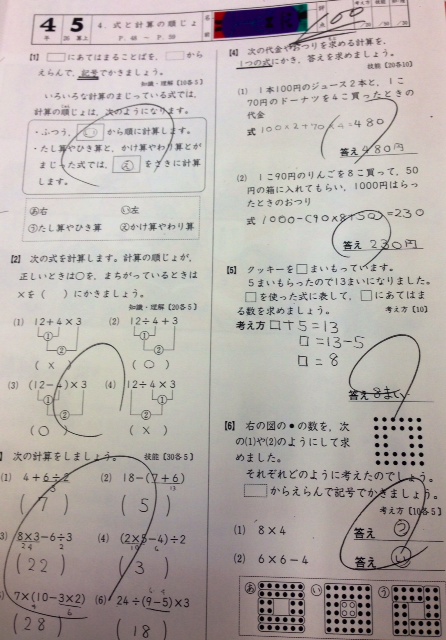 4年 5 算上
4. 式と計算の順じょ
P.48 ～ P.59
名前
得点
100
[1] □にあてはまることばを、□から
えらんで、記号でかきましょう。
知識・理解【10各5】
いろいろな計算のまじっている式では、
計算の順じょは、次のようになります。
・ふつう、い から順に計算します。
・たし算やひき算と、かけ算やわり算とが
まじった式では、え をさきに計算
します。
あ右 い左
うたし算やひき算 えかけ算やわり算
[2] 次の式を計算します。計算の順じょが、
正しいときは○を、まちがっているときは
×を( )にかきましょう。
知識・理解【20各5】
(1) 12+4×3 (2) 12÷4+3
① ①
② ②
(×) (○)
(3) (12-4)×3 (4) 12÷4×3
① ①
② ②
(○) (×)
次の計算をしましょう。 技能【30各5】
(1) 4+6÷2 (2) 18-(7+6)
3 13
(7) (5)
3) 8×3-6÷3 (4) (2×5-4)÷2
24 2 10 6
(22) (3)
5) 7×(10-3×2) (6) 24÷(9-5)×3
(28) (18)
[4] 次の代金やおつりを求める計算を、
1つの式にかき、答えを求めましょう。
技能【20各10】
(1) 1本100円のジュース2本と、1こ
70円のドーナツを4こ買ったときの
代金
式 100×2+70×4=480
答え 480円
(2) 1こ90円のりんごを8こ買って、50
円の箱に入れてもらい、1000円はらっ
たときのおつり
式 1000-(90×8+50)=230
答え 230円
[5] クッキーを□まいもっています。
5まいもらったので13まいになりました。
□を使った式に表して、□にあてはま
る数を求めましょう。 考え方【10】
考え方 □+5=13
□=13-5
□=8
答え 8まい
[6] 右の図の●の数を、次
の(1)や(2)のようにして求
めました。
それぞれどのように考えたのでしょう。
□からえらんで記号でかきましょう。
考え方【10各5】
(1) 8×4 答え う
(2) 6×6-4 答え い
あ い う